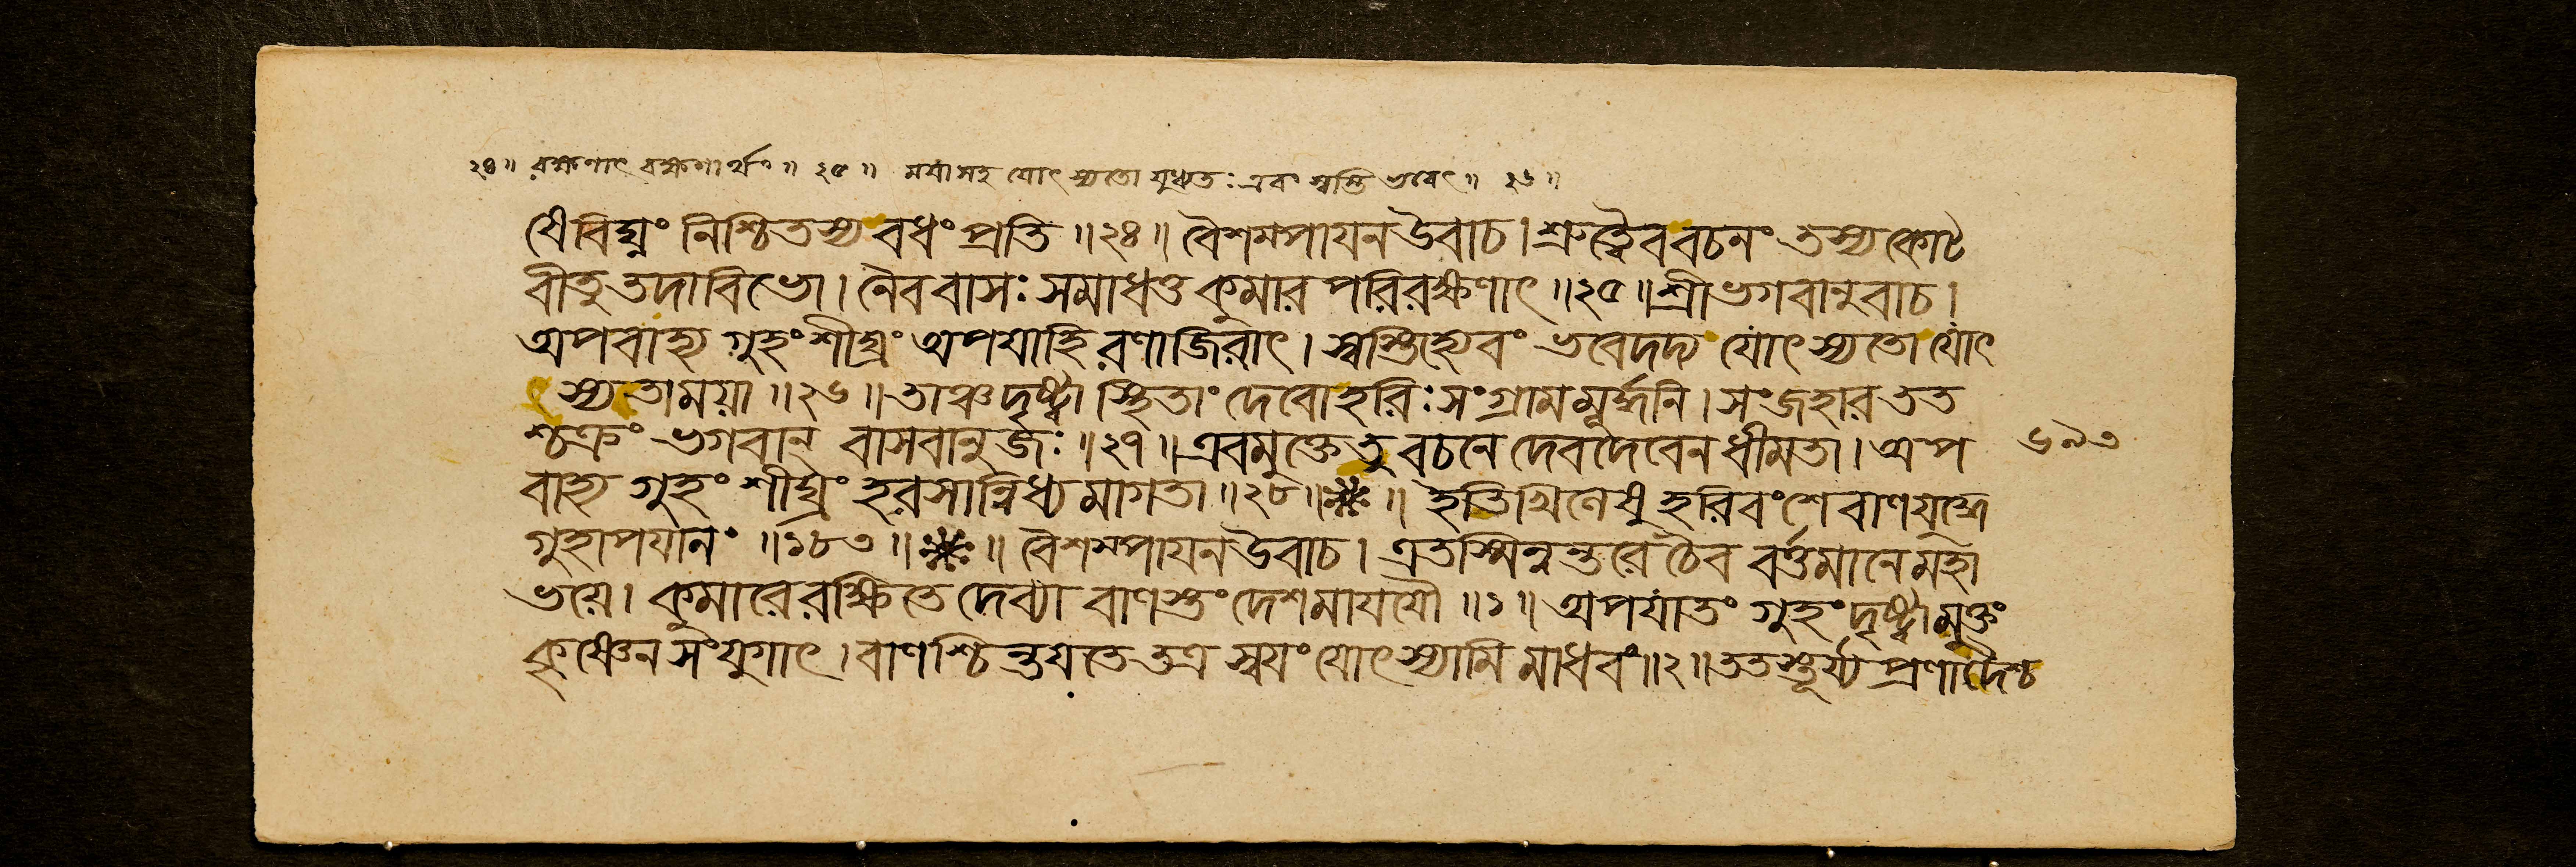 ২৪॥ রক্ষণাৎ রক্ষণার্থং॥ ২৫॥ ময়াসহ যোৎস্যতো যুধ্যতঃ এবং স্বস্তি ভবেৎ॥ ২৬॥
র্যেবিঘ্নং নিশ্চিতস্য বধং প্রতি॥২৪॥ বৈশম্পায়ন উবাচ। শ্রুত্বৈব বচনং তস্য কোট
বীতু তদা বিভো। নৈব বাসঃ সমাধত্ত কুমার পরিরক্ষণাৎ॥২৫॥ শ্রীভগবানুবাচ।
অপবাহ্য গুহং শীঘ্রং অপযাহি রণাজিরাৎ। স্বস্তিহ্যেবং ভবেদদ্য যোৎস্যতো যোৎ
স্যতা ময়া॥২৬॥ তাঞ্চ দৃষ্ট্বা স্থিতাং দেবো হরিঃ সংগ্রাম মূর্দ্ধনি। সংজহার তত
শ্চক্রং ভগবান্ বাসবানুজঃ॥২৭॥ এবমুক্তে তু বচনে দেবদেবেন ধীমতা। অপ
৬৯৩
বাহ্য গুহং শীঘ্রং হরসান্নিধ্যমাগতা॥২৮॥ ॥ ইতি খিলেষু হরিবংশে বাণযুদ্ধে
গুহাপযানং॥১৮৩॥ ॥ বৈশম্পায়ন উবাচ। এতস্মিন্নন্তরে চৈব বর্ত্তমানে মহা
ভয়ে। কুমারে রক্ষিতে দেব্যা বাণস্তং দেশমাযযৌ॥১॥ অপযাতং গুহং দৃষ্ট্বা মুক্তং
কৃষ্ণেন সংযুগাৎ। বাণশ্চিন্তয়তে তত্র স্বয়ং যোৎস্যামি মাধবং॥২॥ ততস্তূর্য্য প্রণাদৈশ্চ